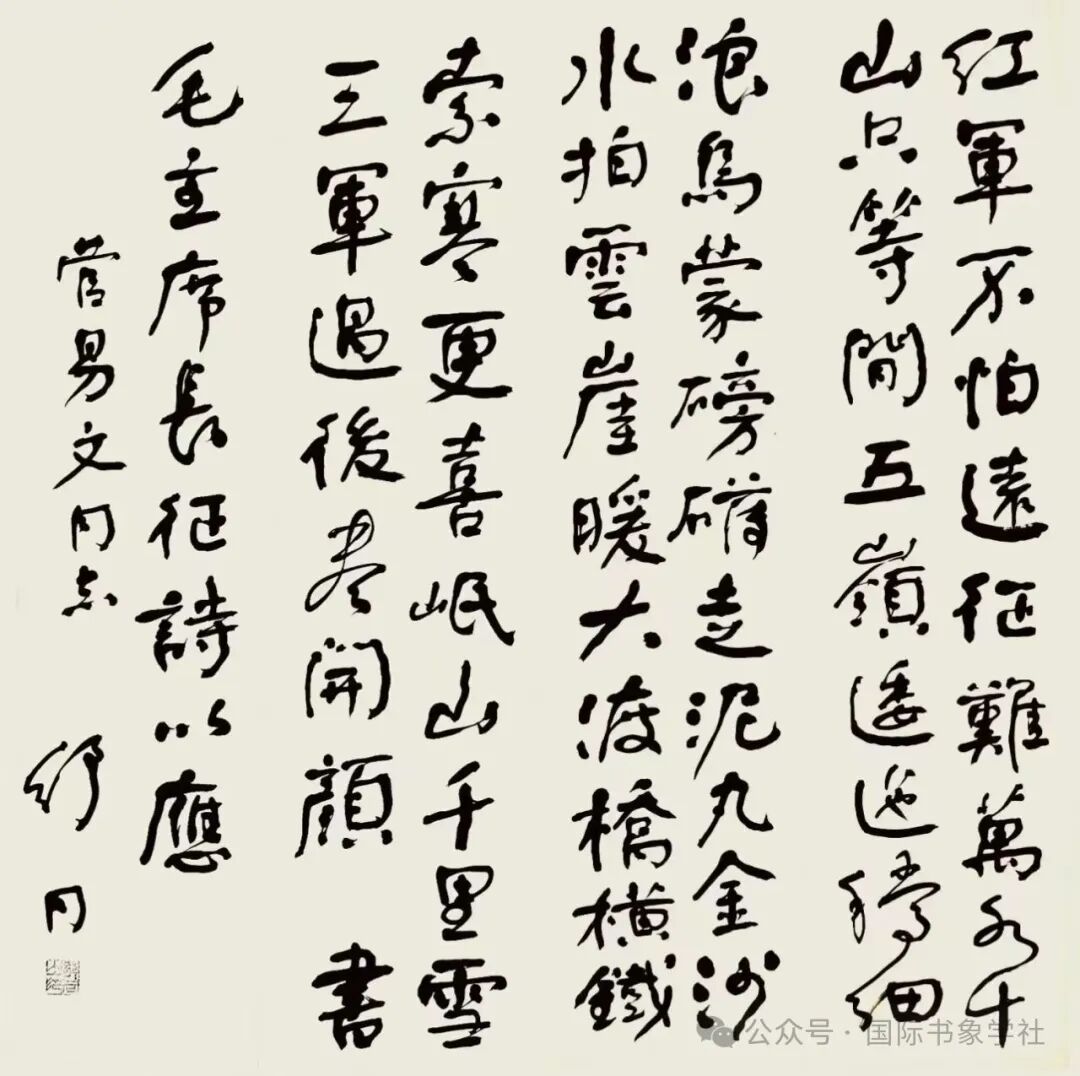 紅軍不怕遠征難萬水千
山只等閒五嶺逶迤騰細
浪烏蒙磅礴走泥丸金沙
水拍雲崖暖大渡橋橫鐵
索寒更喜岷山千里雪
三軍過後盡開顏 書
毛主席長征詩以應
管易文同志
舒同
公众号·国际书象学社